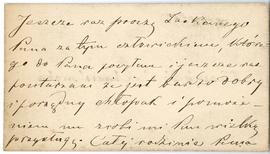 Jeszcze raz proszę Łaskawego
Pana za tym człowiekiem, które-
go do Pana posyłam i jeszcze raz
powtarzam że jest bardzo dobry
i porządny chłopak i pomoże-
niem mu zrobi mi Pan wielką
przysługę. Całej rodzinie Pana